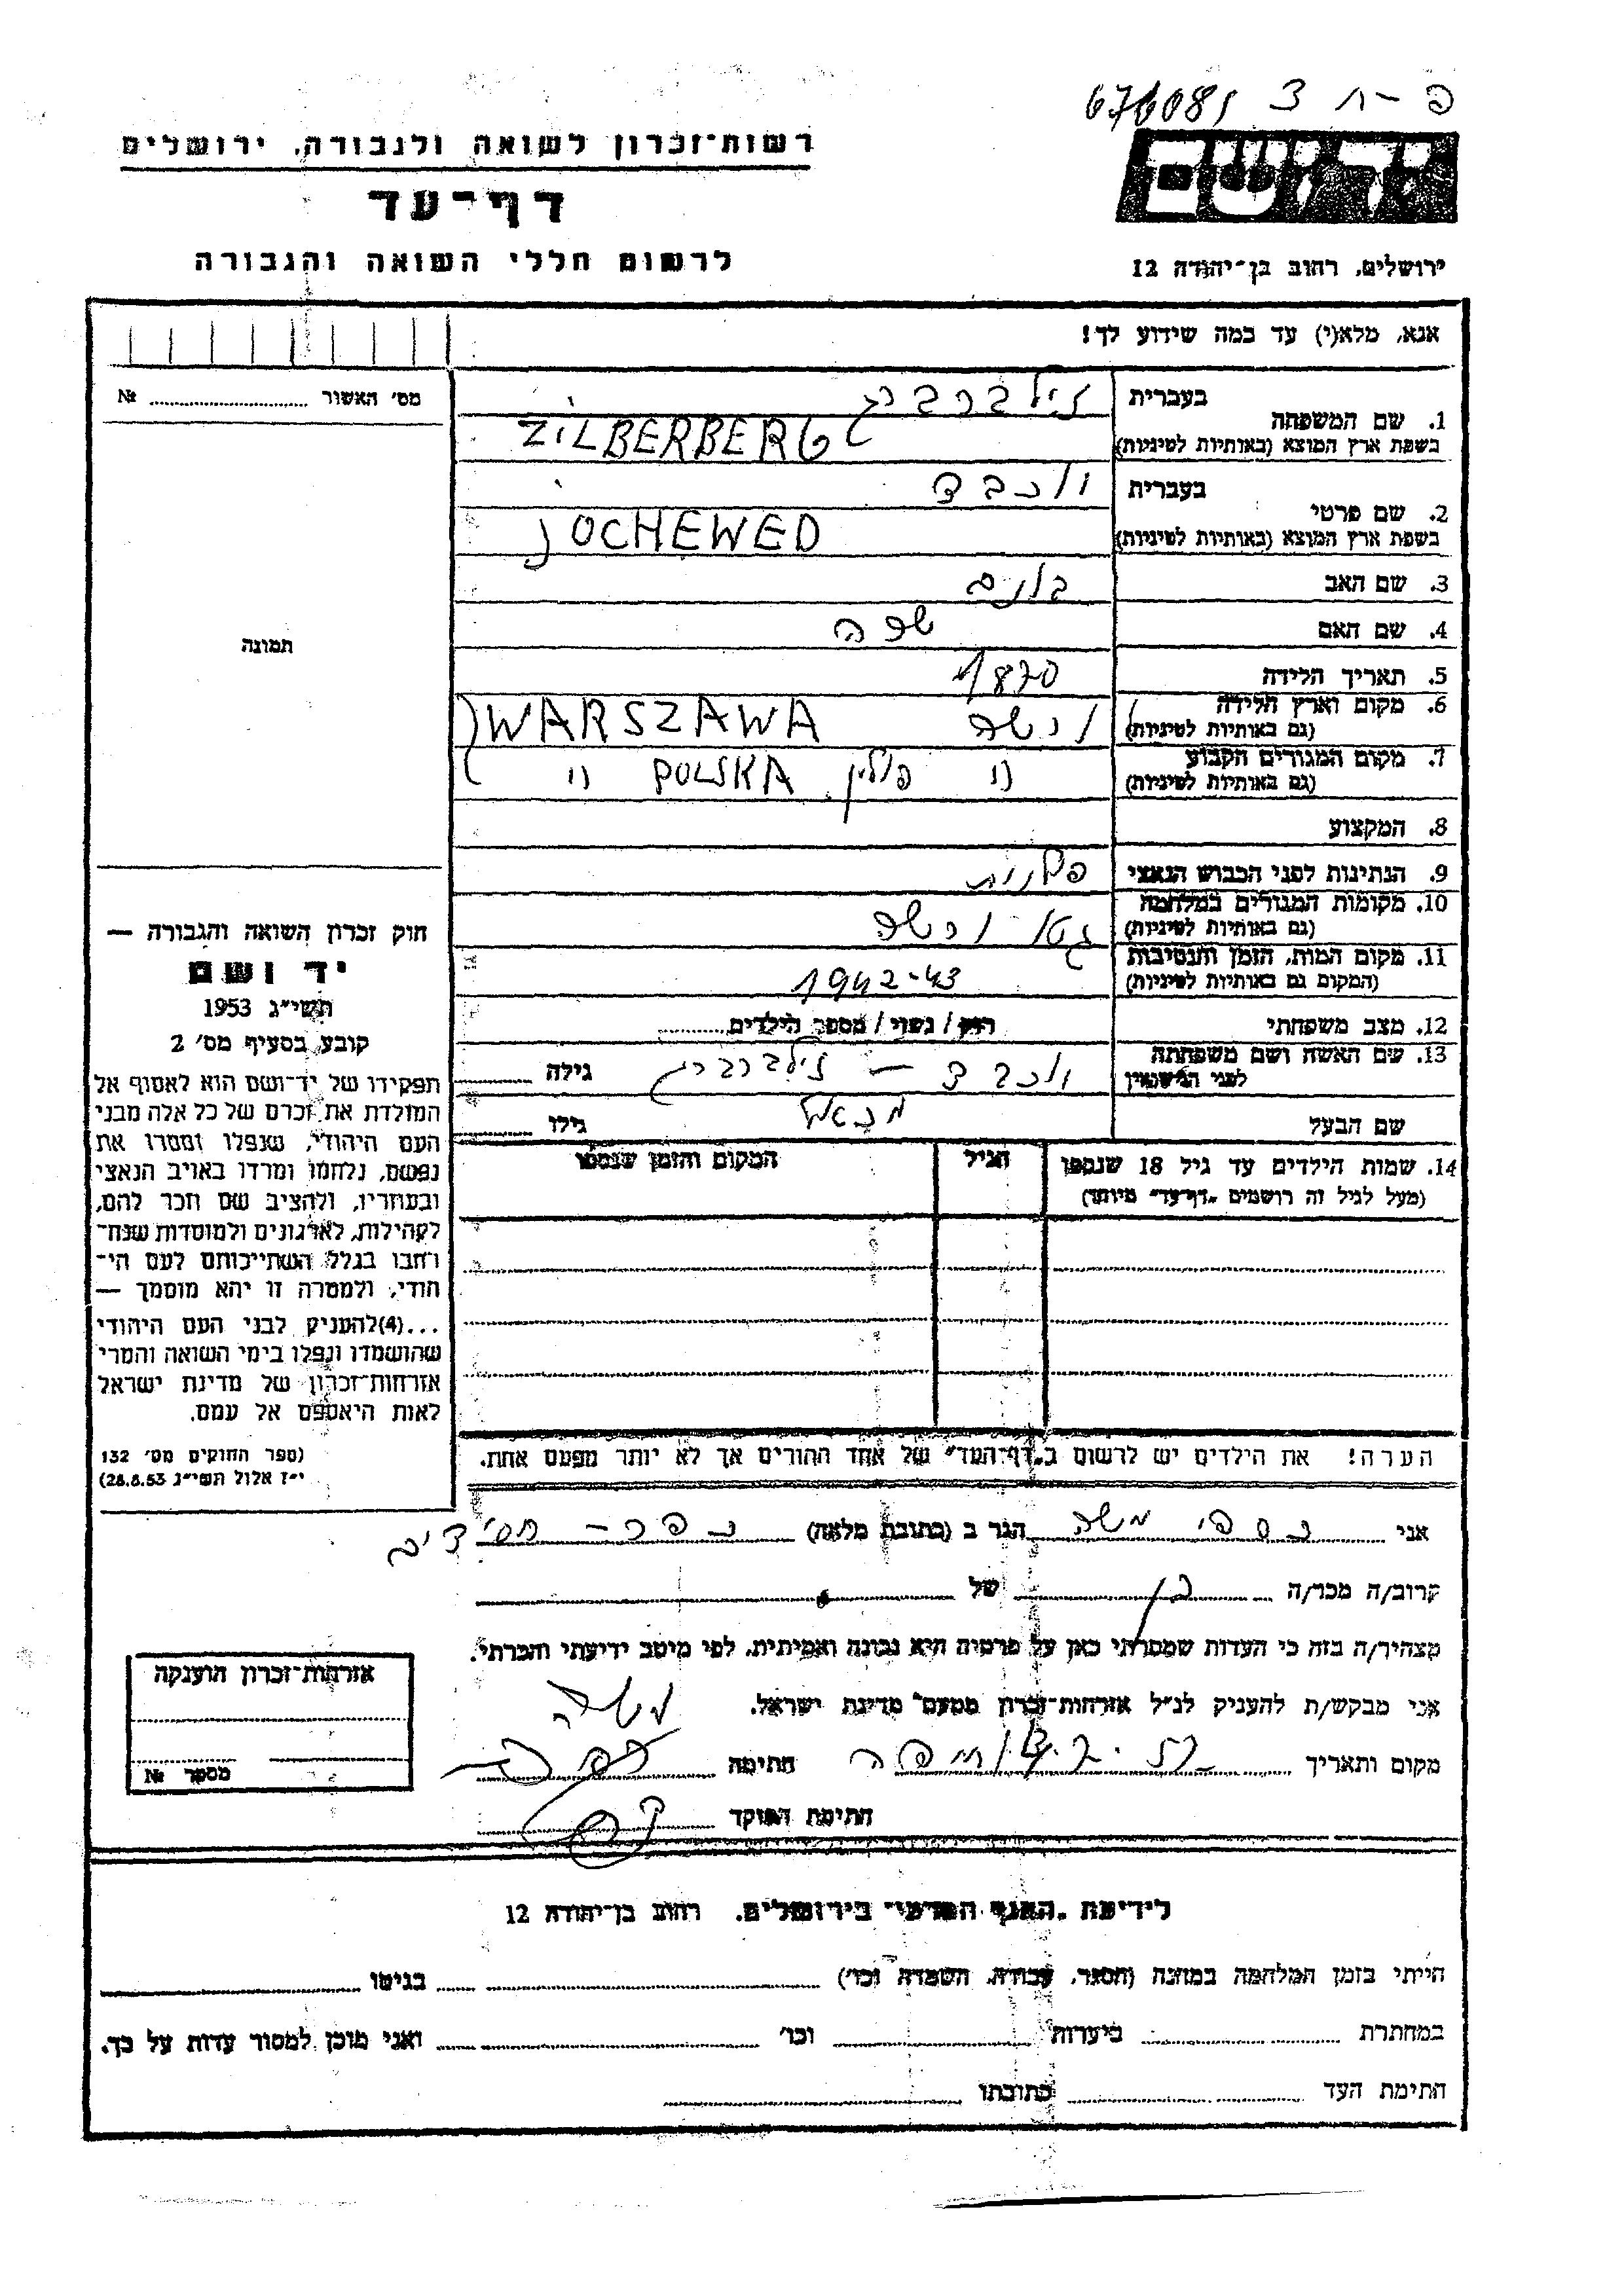 פ-ח צ 676081
רשות־זכרון לשואה ולגבורה, ירושלים
דף־עד
לרשום חללי השואה והגבורה
יד ושם
ירושלים, רחוב בן־יהודה 12
אנא, מלא(י) עד כמה שידוע לך!
מס׳ האשור № 
1. שם המשפחה בעברית זילברברג
בשפת ארץ המוצא (באותיות לטיניות) ZILBERBERG
2. שם פרטי בעברית יוכבד
בשפת ארץ המוצא (באותיות לטיניות) JOCHEWED
3. שם האב בלום
4. שם האם שפה
5. תאריך הלידה 1870
6. מקום וארץ הלידה (גם באותיות לטיניות) ורשה WARSZAWA
7. מקום המגורים הקבוע (גם באותיות לטיניות) פולין POLSKA
8. המקצוע
9. הנתינות לפני הכבוש הנאצי פולנית
10. מקומות המגורים במלחמה (גם באותיות לטיניות) גטו ורשה
11. מקום המות, הזמן והנסיבות (המקום גם באותיות לטיניות) 1942-43
12. מצב משפחתי רוק / נשוי / מספר הילדים
13. שם האשה ושם משפחתה לפני הנישואין יוכבד - זילברברג גילה
שם הבעל גילו
14. שמות הילדים עד גיל 18 שנספו הגיל המקום והזמן שנספו
(מעל לגיל זה רושמים „דף־עד״ מיוחד)
הערה! את הילדים יש לרשום ב„דף־העד״ של אחד ההורים אך לא יותר מפעם אחת.
תמונה
חוק זכרון השואה והגבורה —
יד ושם
תשי״ג 1953
קובע בסעיף מס׳ 2
תפקידו של יד־ושם הוא לאסוף אל
המולדת את זכרם של כל אלה מבני
העם היהודי, שנפלו ומסרו את
נפשם, נלחמו ומרדו באויב הנאצי
ובעוזריו, ולהציב שם וזכר להם,
לקהילות, לארגונים ולמוסדות שנח־
רחבו בגלל השתייכותם לעם הי־
הודי, ולמטרה זו יהא מוסמך —
...(4)להעניק לבני העם היהודי
שהושמדו ונפלו בימי השואה והמרי
אזרחות־זכרון של מדינת ישראל
לאות היאספם אל עמם.
(ספר החוקים מס׳ 132
י״ז אלול תשי״ג 28.8.53)
אני כספי משה הגר ב (כתובת מלאה) כפר-חסידים
קרוב/ה מכר/ה בן של
מצהיר/ה בזה כי העדות שמסרתי כאן על פרטיה היא נכונה ואמיתית, לפי מיטב ידיעתי והכרתי.
אני מבקש/ת להעניק לנ״ל אזרחות־זכרון מטעם מדינת ישראל.
מקום ותאריך חתימה משה כספי
חתימת הפוקד
אזרחות־זכרון הוענקה
מספר №
לידיעת „האגף המדעי״ בירושלים, רחוב בן־יהודה 12
הייתי בזמן המלחמה במחנה (הסגר, עבודה, השמדה וכו׳) בגיטו
במחתרת ביערות וכו׳ ואני מוכן למסור עדות על כך.
חתימת העד כתובתו